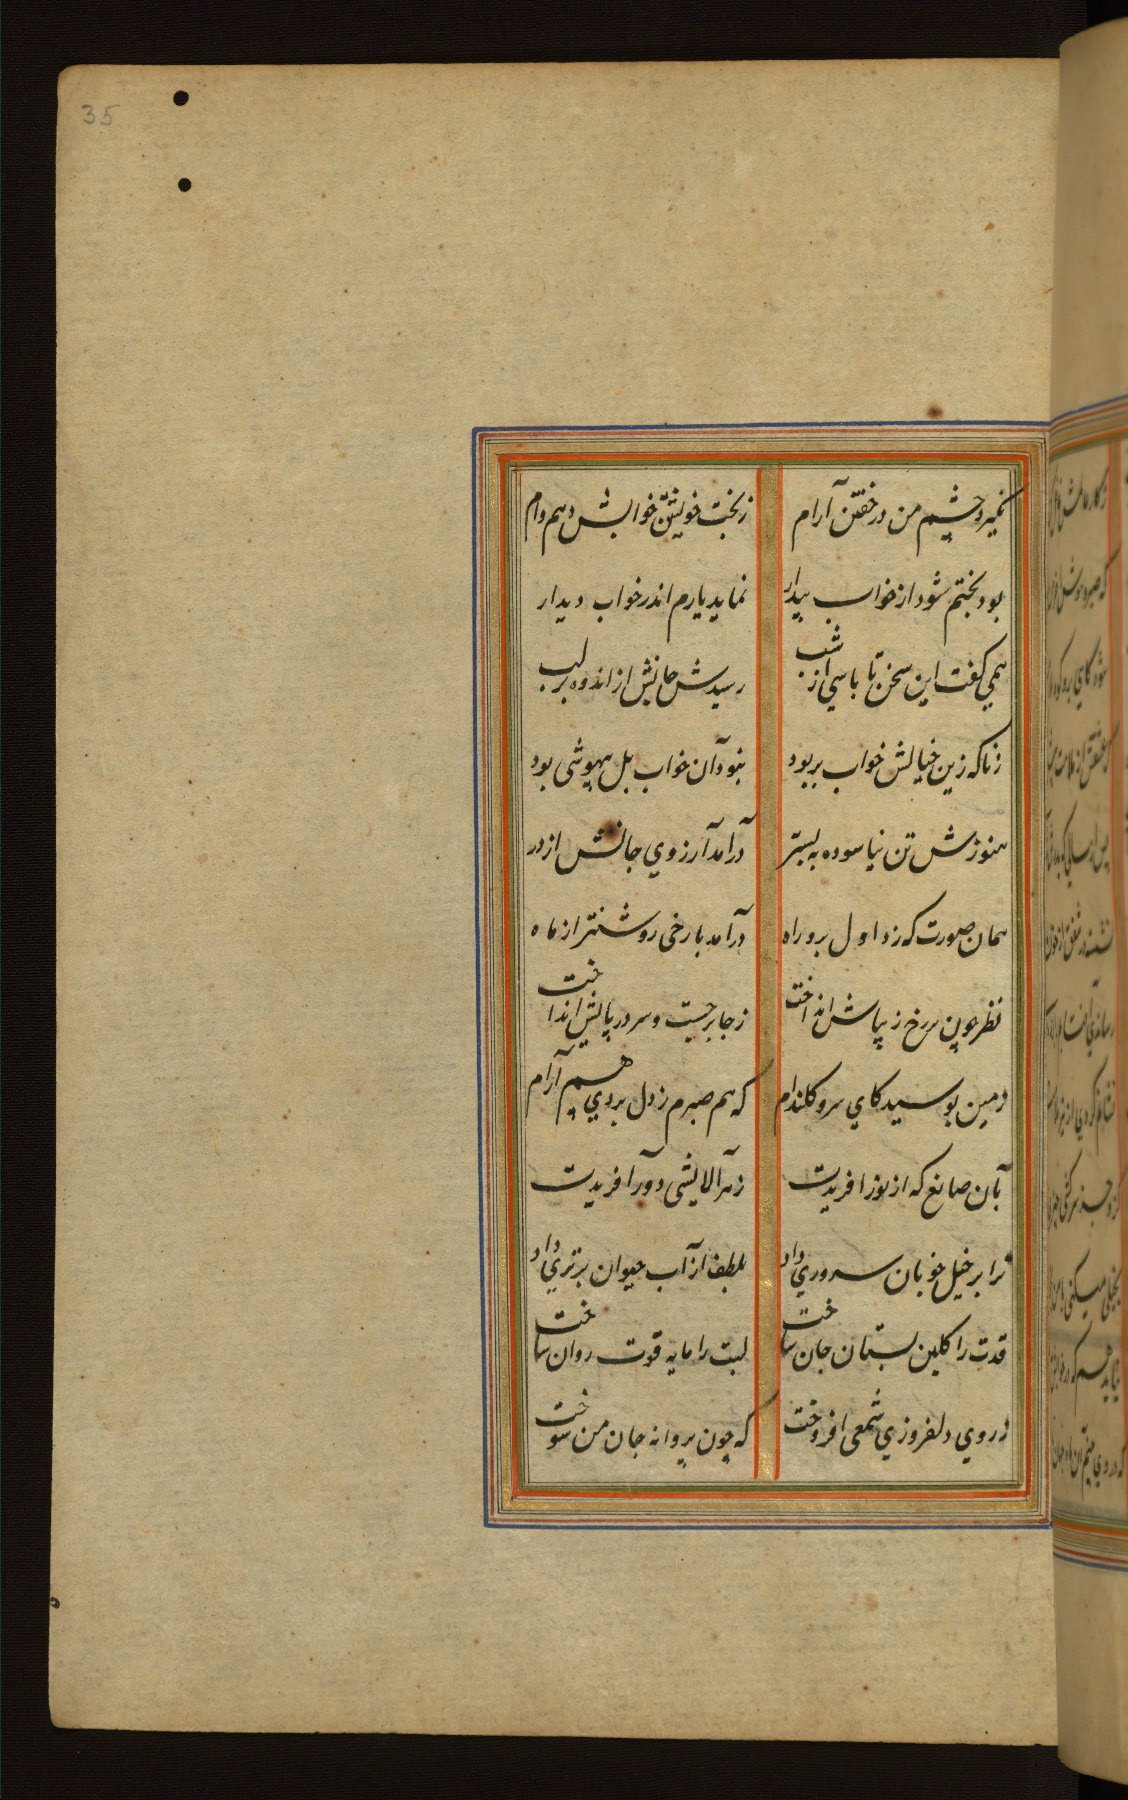 35
نگیرد چشم من در خفتن آرام
ز بخت خویشتن خوابش دهم وام
بود بختم شود از خواب بیدار
نماید یارم اندر خواب دیدار
همی کفت این سخن تا پاسی از شب
رسیدش جانش از اندوه بر لب
زناکه زین خیالش خواب بربود
نبود آن خواب بل بیهوشی بود
هنوزش تن نیاسوده به بستر
درآمد آرزوی جانش از در
همان صورت که زد اول برو راه
درآمد با رخی روشنتر از ماه
نظر چون بر رخ زیباش انداخت
ز جا برجست و سر در پایش انداخت
زمین بوسید کای سرو کلندام
که هم صبرم ز دل بردی هم آرام
بآن صانع که از نور آفریدت
ز هر آلایشی دور آفریدت
ترا بر خیل خوبان سروری داد
بلطف از آب حیوان برتری داد
قدت را کلبن بستان جان ساخت
لبت را مایه قوت روان ساخت
ز روی دلفروزی شمعی افروخت
که چون پروانه جان من سوخت